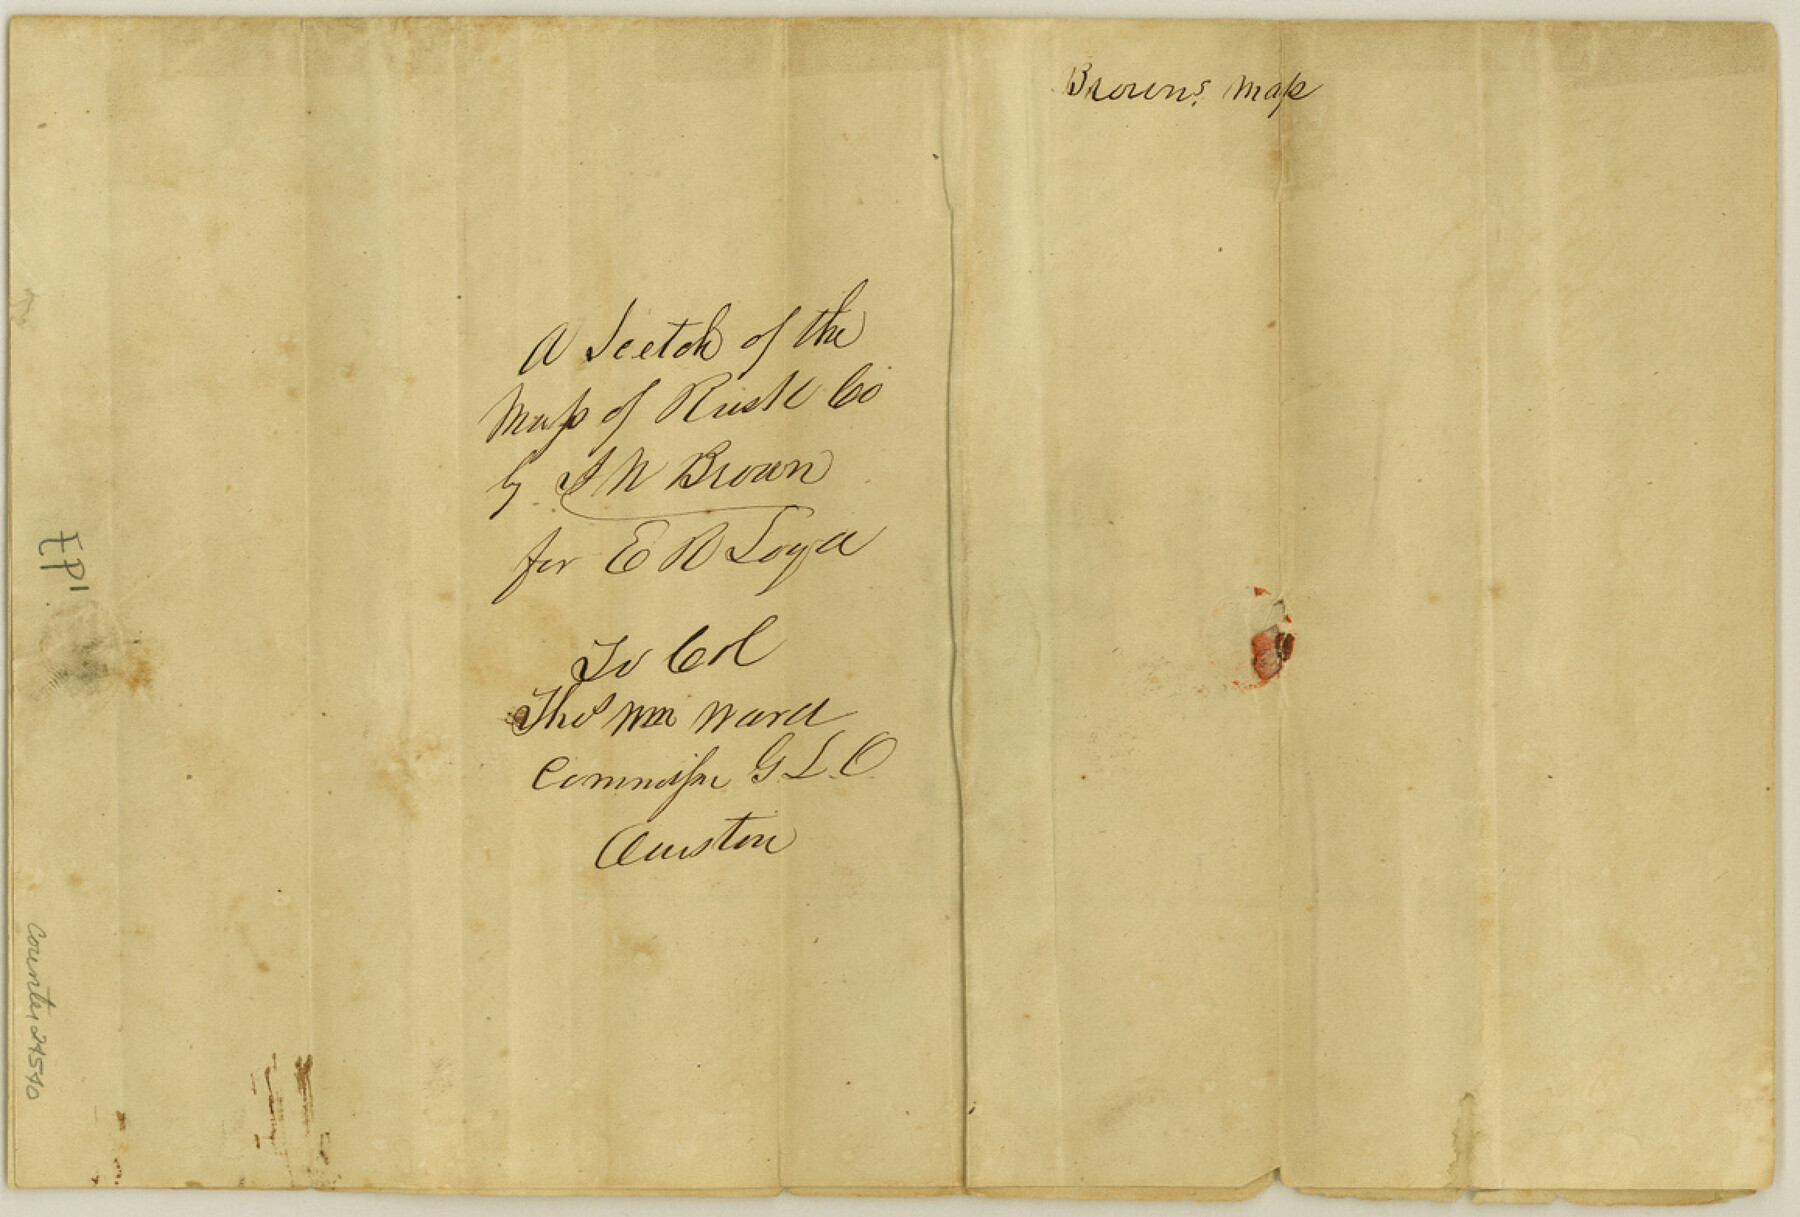 Browns. Map
A Scetch of the
Map of Rusk Co
by I N Brown
for E R Loyd
To Col
Thos Wm Ward
Commissr G. L. O.
Austin
Counter 24540